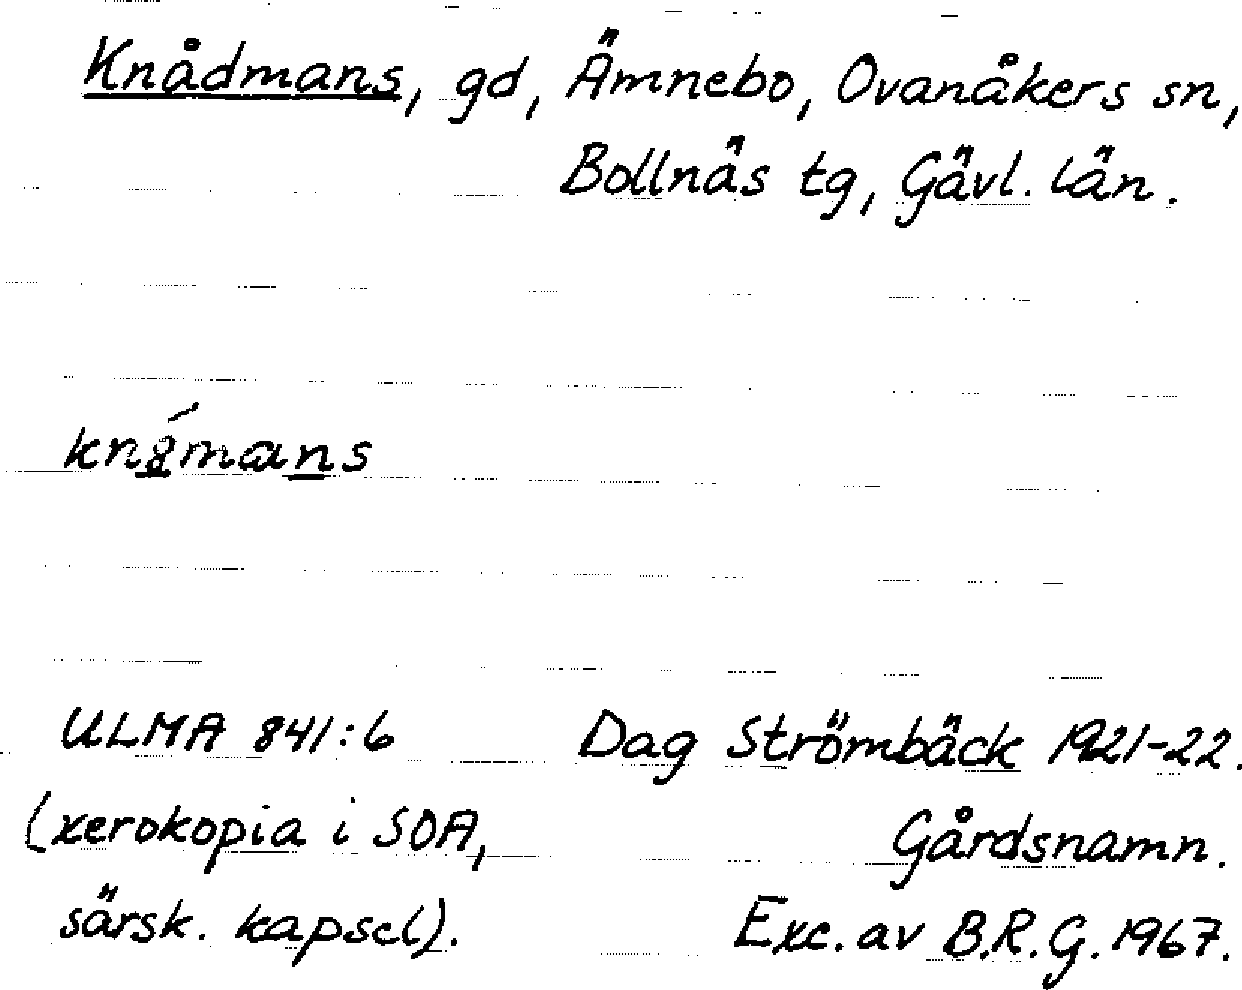 Knådmans, gd, Ämnebo, Ovanåkers sn,
Bollnäs tg, Gävl. län.
ULMA 841:6 Dag Strömbäck 1921-22.
(xerokopia i SOA, Gårdsnamn.
särsk. kapsel). Exc. av B.R.G. 1967.